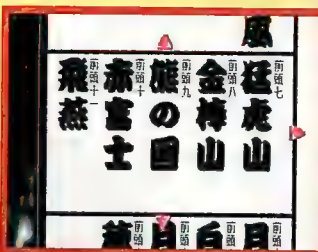 前頭七
猛虎山
前頭八
金樽山
前頭九
熊の国
前頭十
赤富士
前頭十一
飛燕
前頭
前頭
前頭